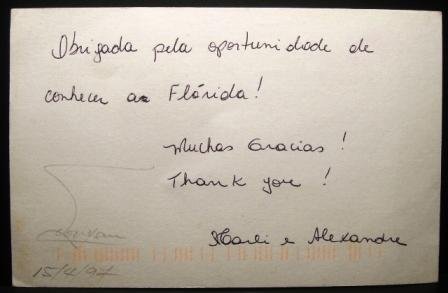 Obrigada pela oportunidade de
conhecer a Flórida!
Muchas Gracias!
Thank you!
Marli e Alexandre
15/4/97